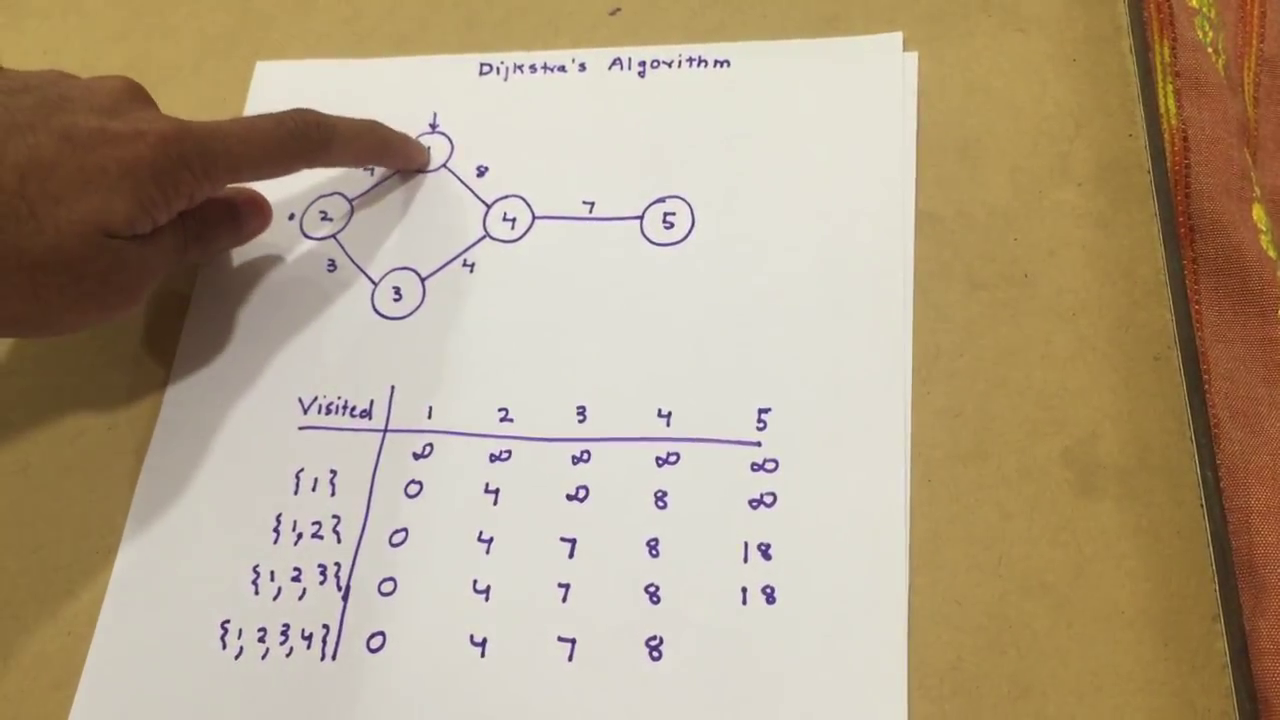 Dijkstra's Algorithm
8
2
4
7
5
3
4
3
Visited 1 2 3 4 5
∞ ∞ ∞ ∞ ∞
{1} 0 4 ∞ 8 ∞
{1,2} 0 4 7 8 18
{1,2,3} 0 4 7 8 18
{1,2,3,4} 0 4 7 8